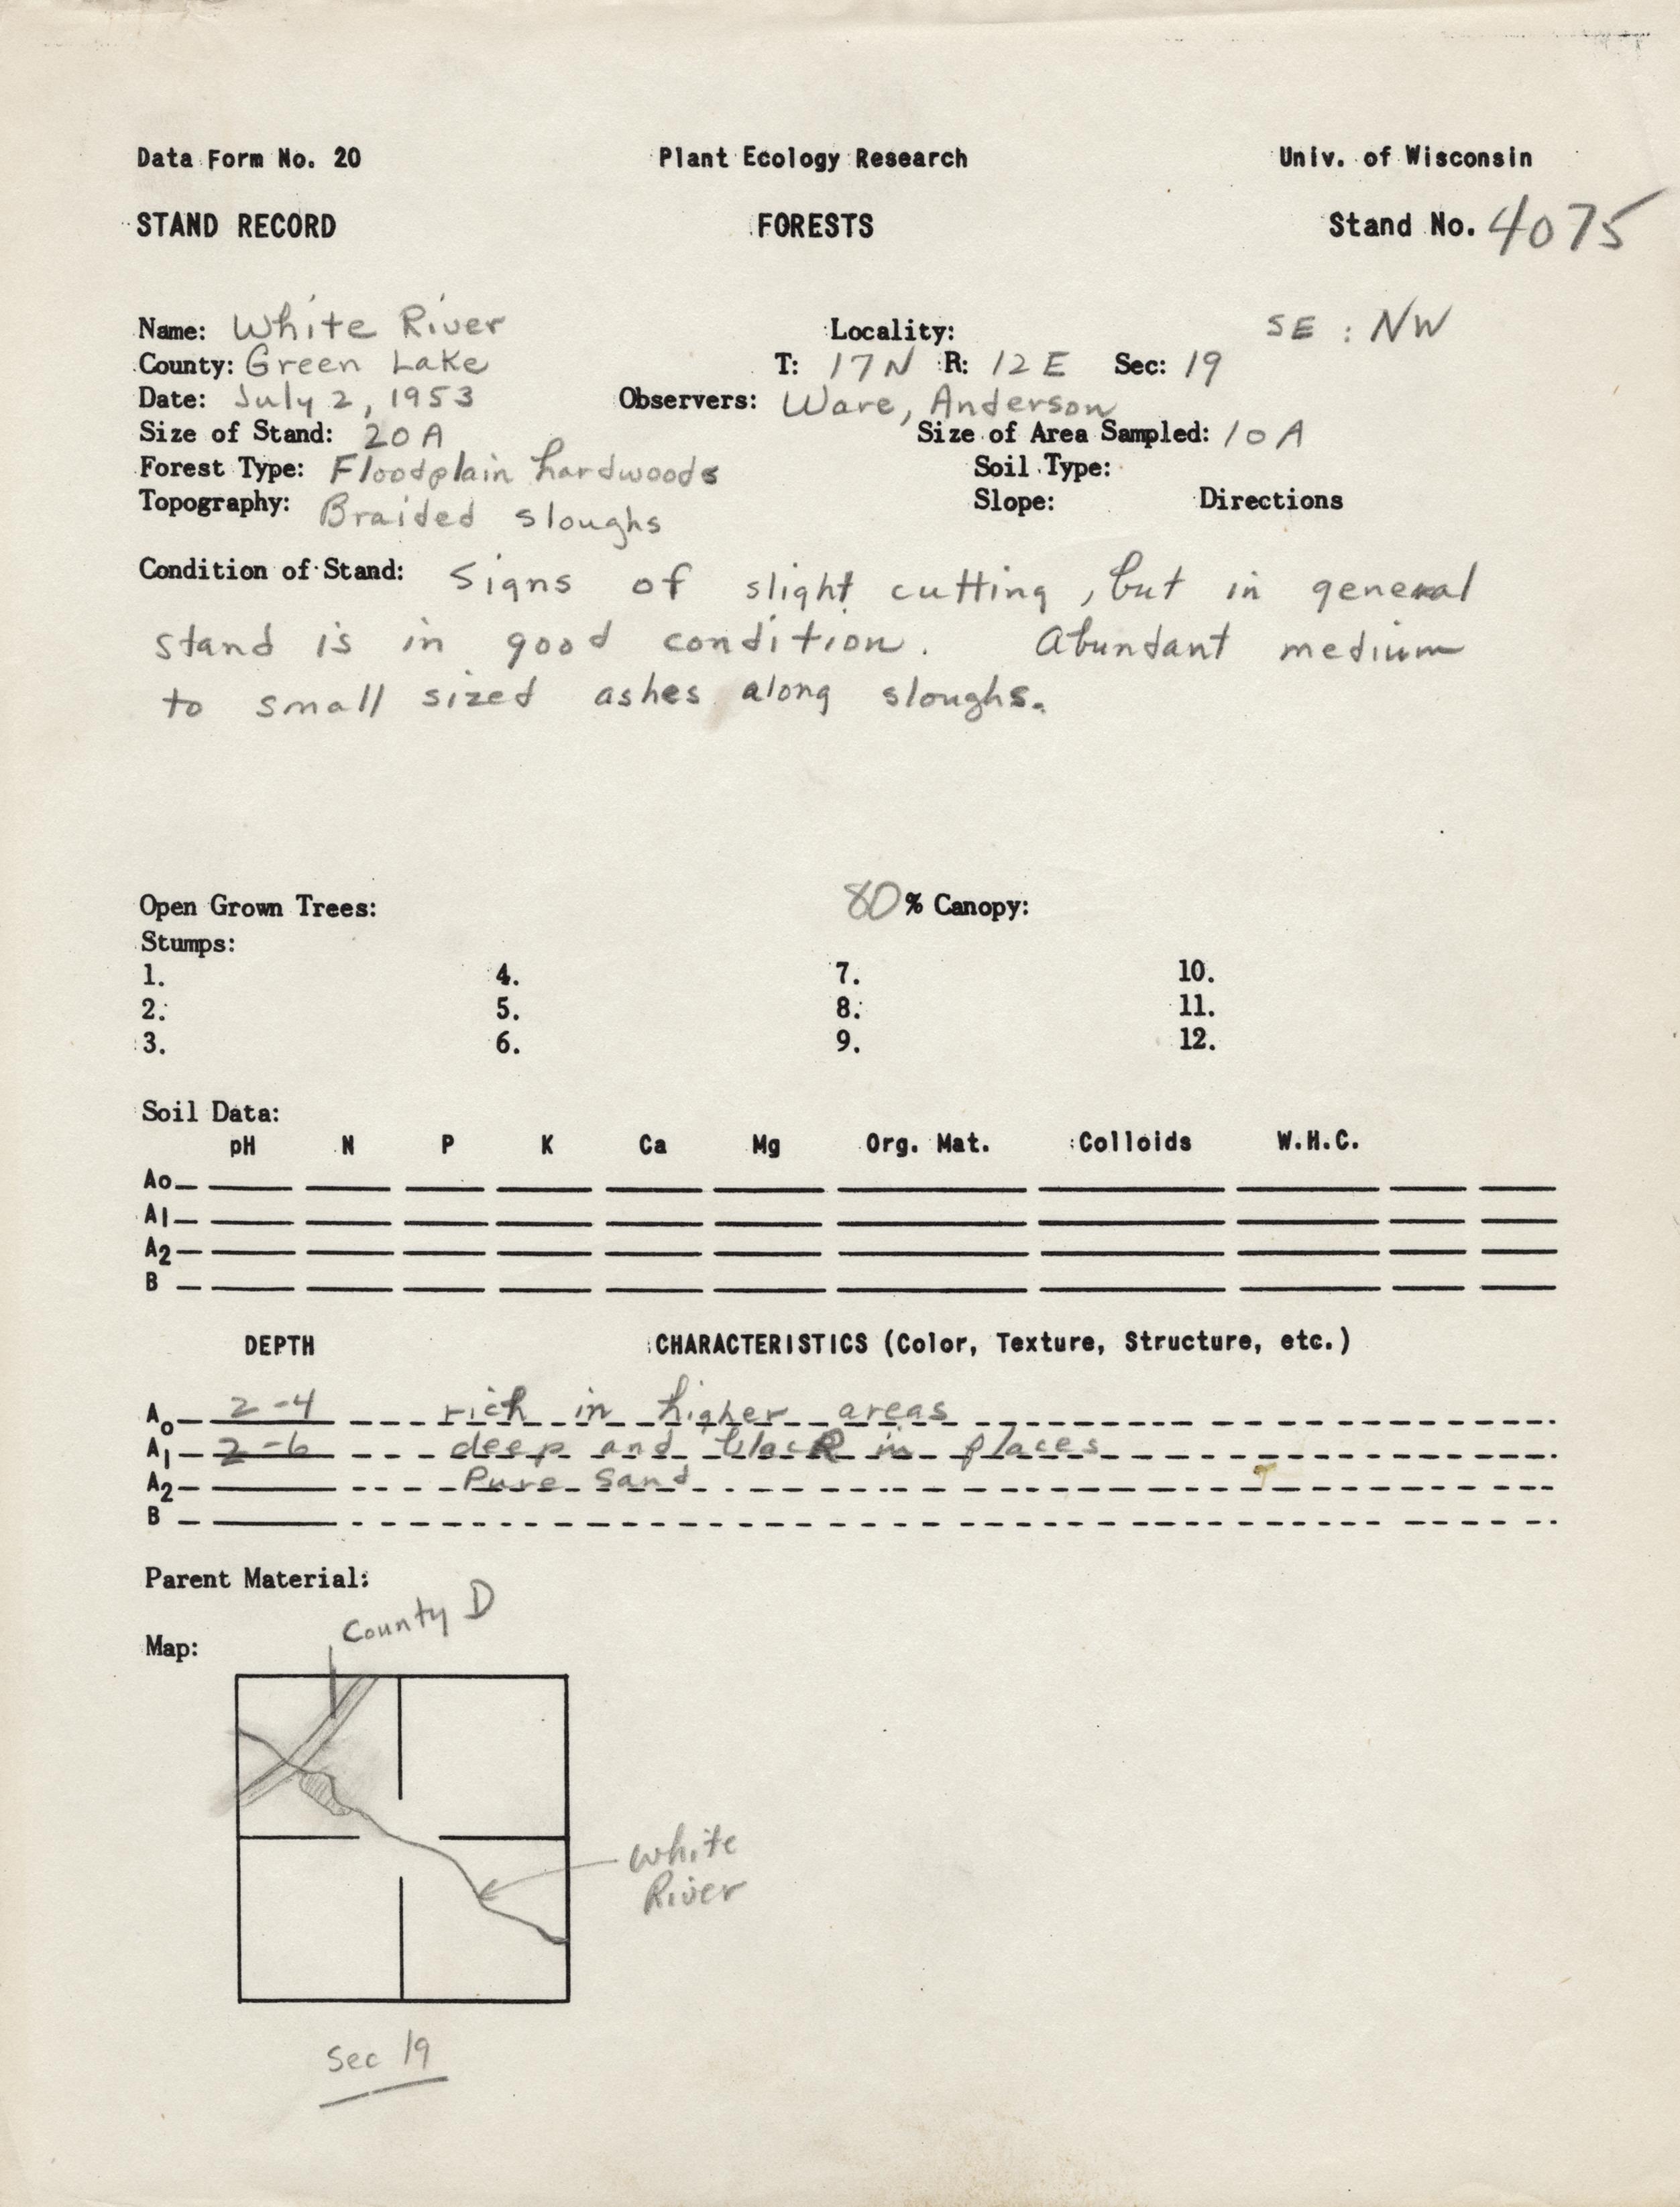 Data Form No. 20 Plant Ecology Research Univ. of Wisconsin
STAND RECORD FORESTS Stand No. 4075
Name: White River Locality: SE : NW
County: Green Lake T: 17N R: 12E Sec: 19
Date: July 2, 1953 Observers: Ware, Anderson
Size of Stand: 20A Size of Area Sampled: 10A
Forest Type: Floodplain hardwoods Soil Type:
Topography: Braided sloughs Slope: Directions
Condition of Stand: Signs of slight cutting, but in general
stand is in good condition. Abundant medium
to small sized ashes along sloughs.
Open Grown Trees: 80% Canopy:
Stumps:
1. 4. 7. 10.
2. 5. 8. 11.
3. 6. 9. 12.
Soil Data:
pH N P K Ca Mg Org. Mat. Colloids W.H.C.
Ao
A1
A2
B
DEPTH CHARACTERISTICS (Color, Texture, Structure, etc.)
Ao 2-4 rich in higher areas
A1 2-6 deep and black in places
A2 Pure Sand
B
Parent Material:
County D
Map:
White
River
Sec 19